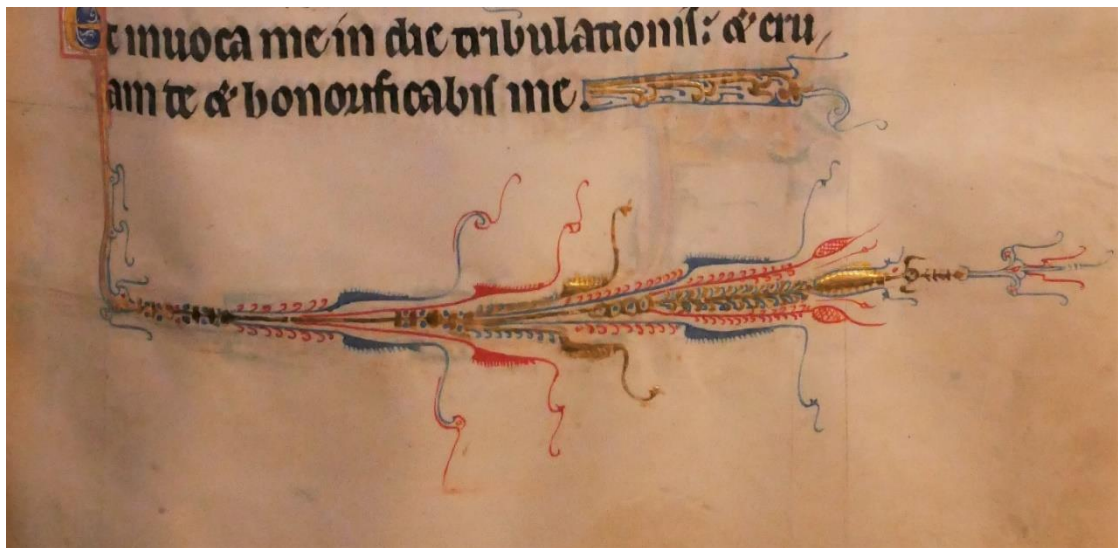 Et inuoca me in die tribulationis: & eru
am te & honorificabis me.